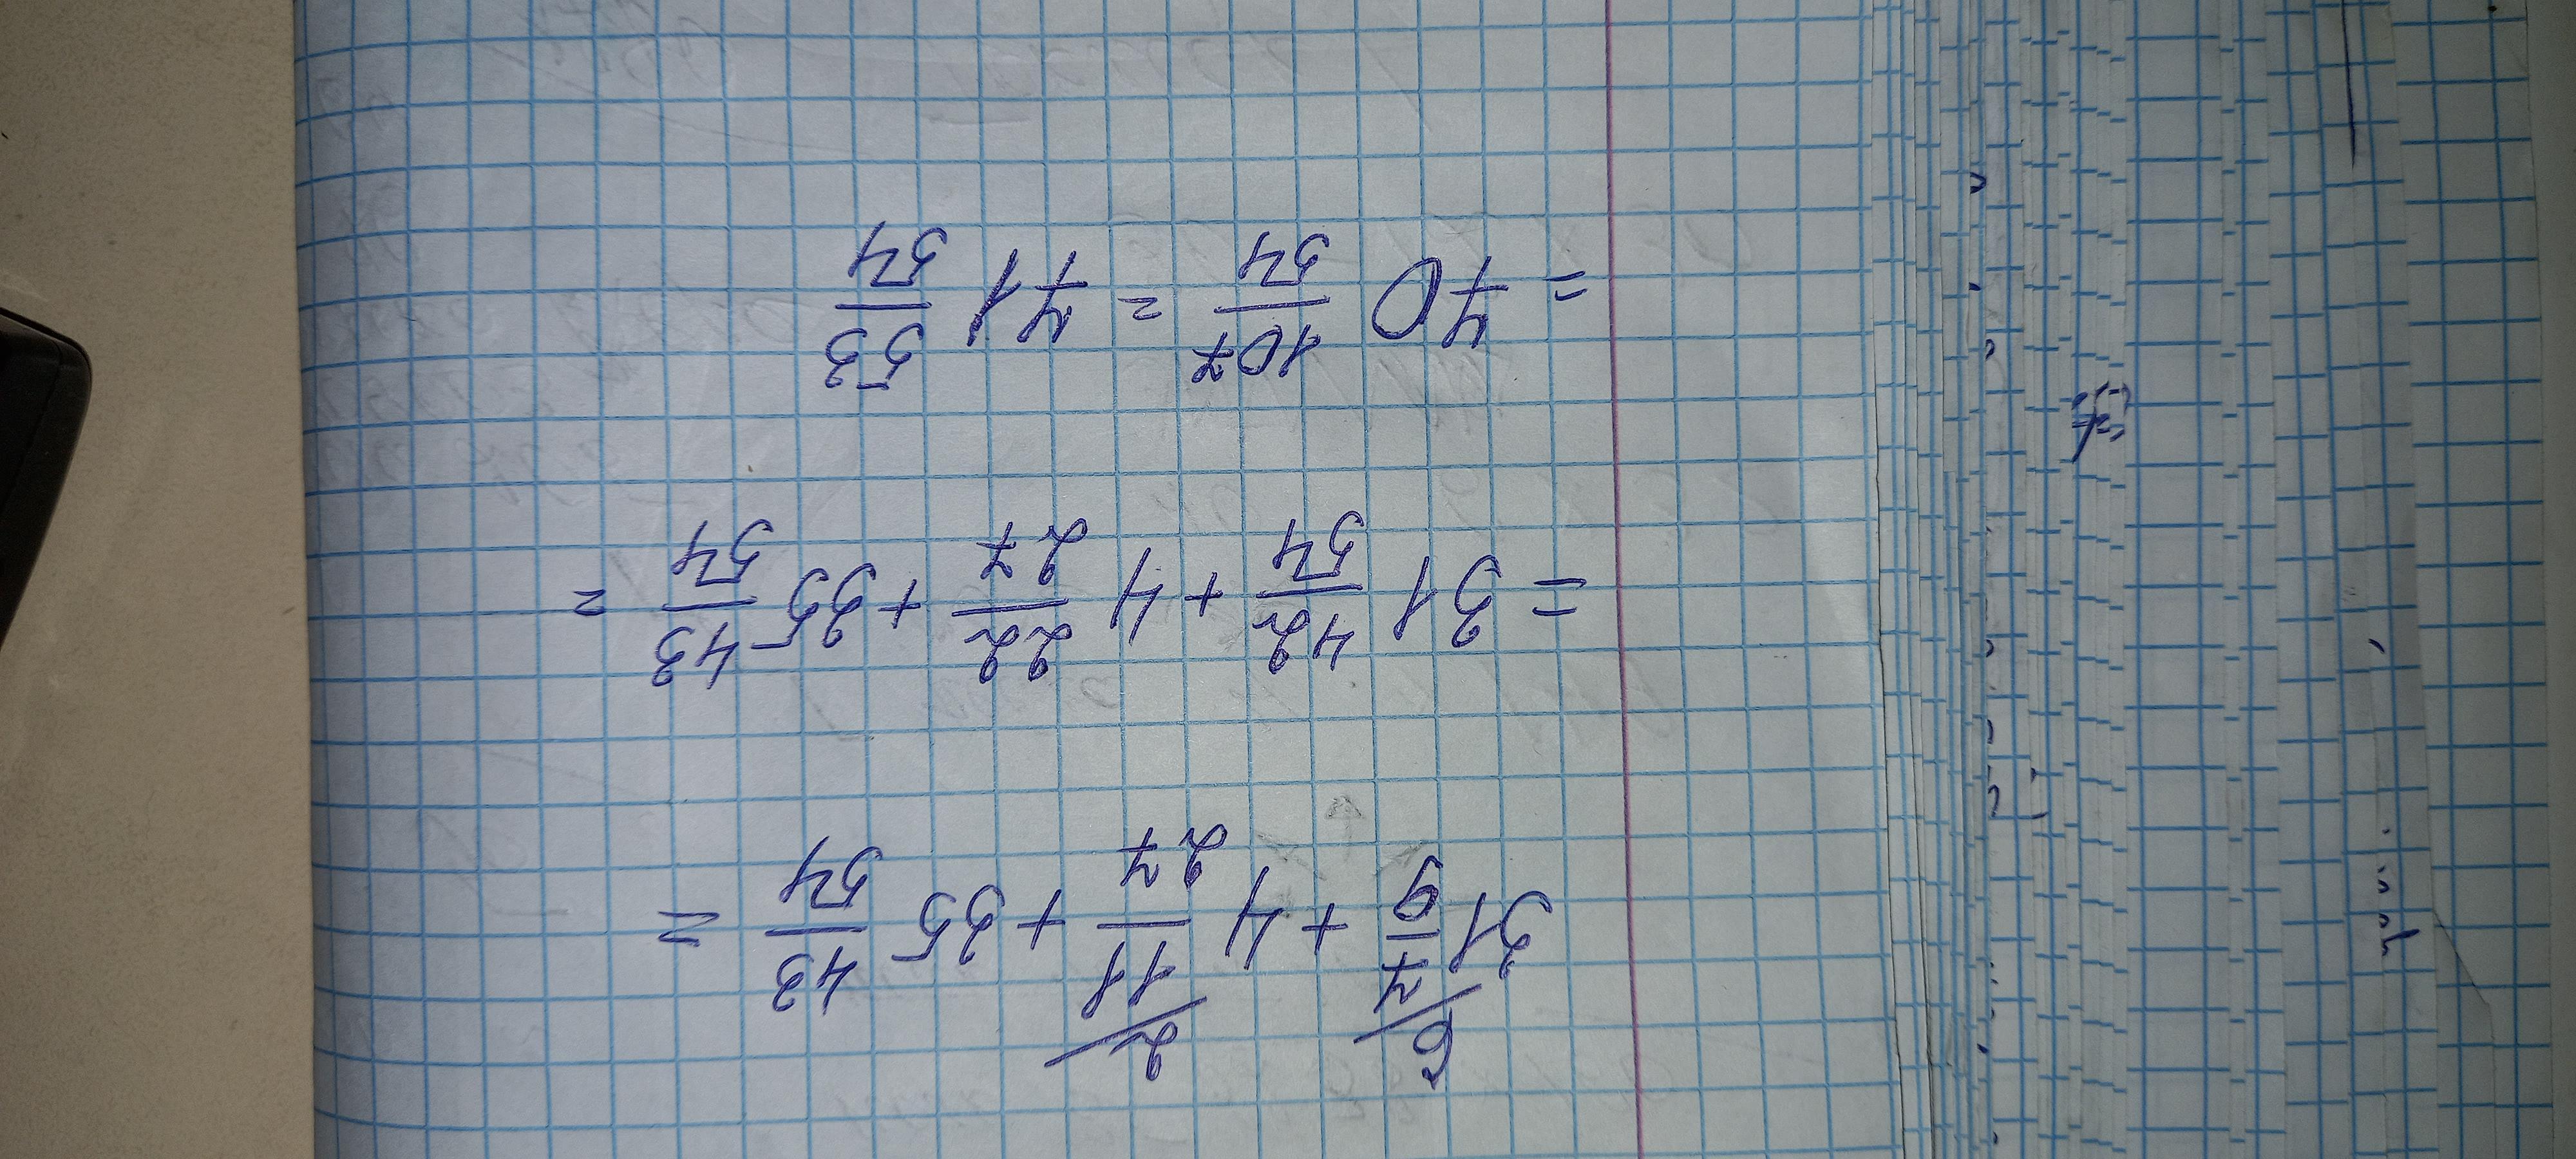 31 7/9 (6/ + 4 11/27 (2/ + 35 43/54 =
= 31 42/54 + 4 22/27 + 35 43/54 =
= 70 107/54 = 71 53/54